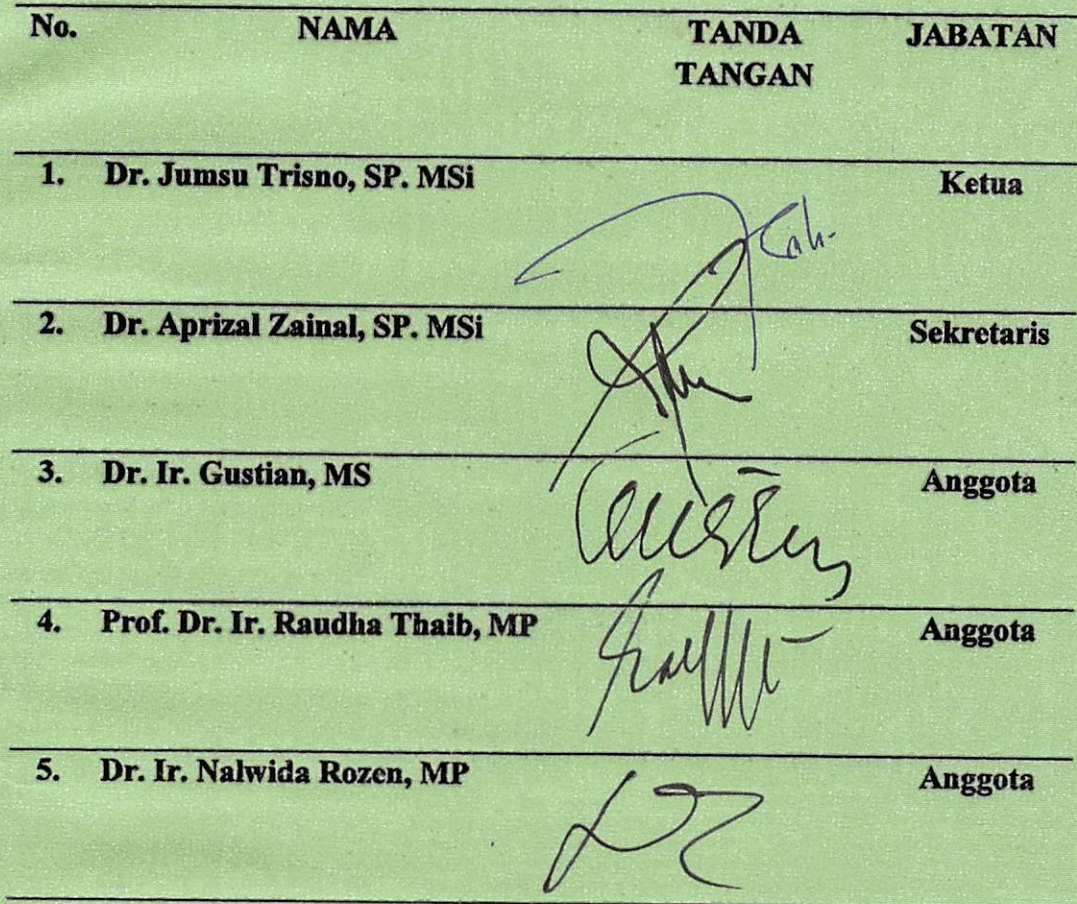 No. NAMA TANDA TANGAN JABATAN
1. Dr. Jumsu Trisno, SP. MSi Ketua
2. Dr. Aprizal Zainal, SP. MSi Sekretaris
3. Dr. Ir. Gustian, MS Anggota
4. Prof. Dr. Ir. Raudha Thaib, MP Anggota
5. Dr. Ir. Nalwida Rozen, MP Anggota